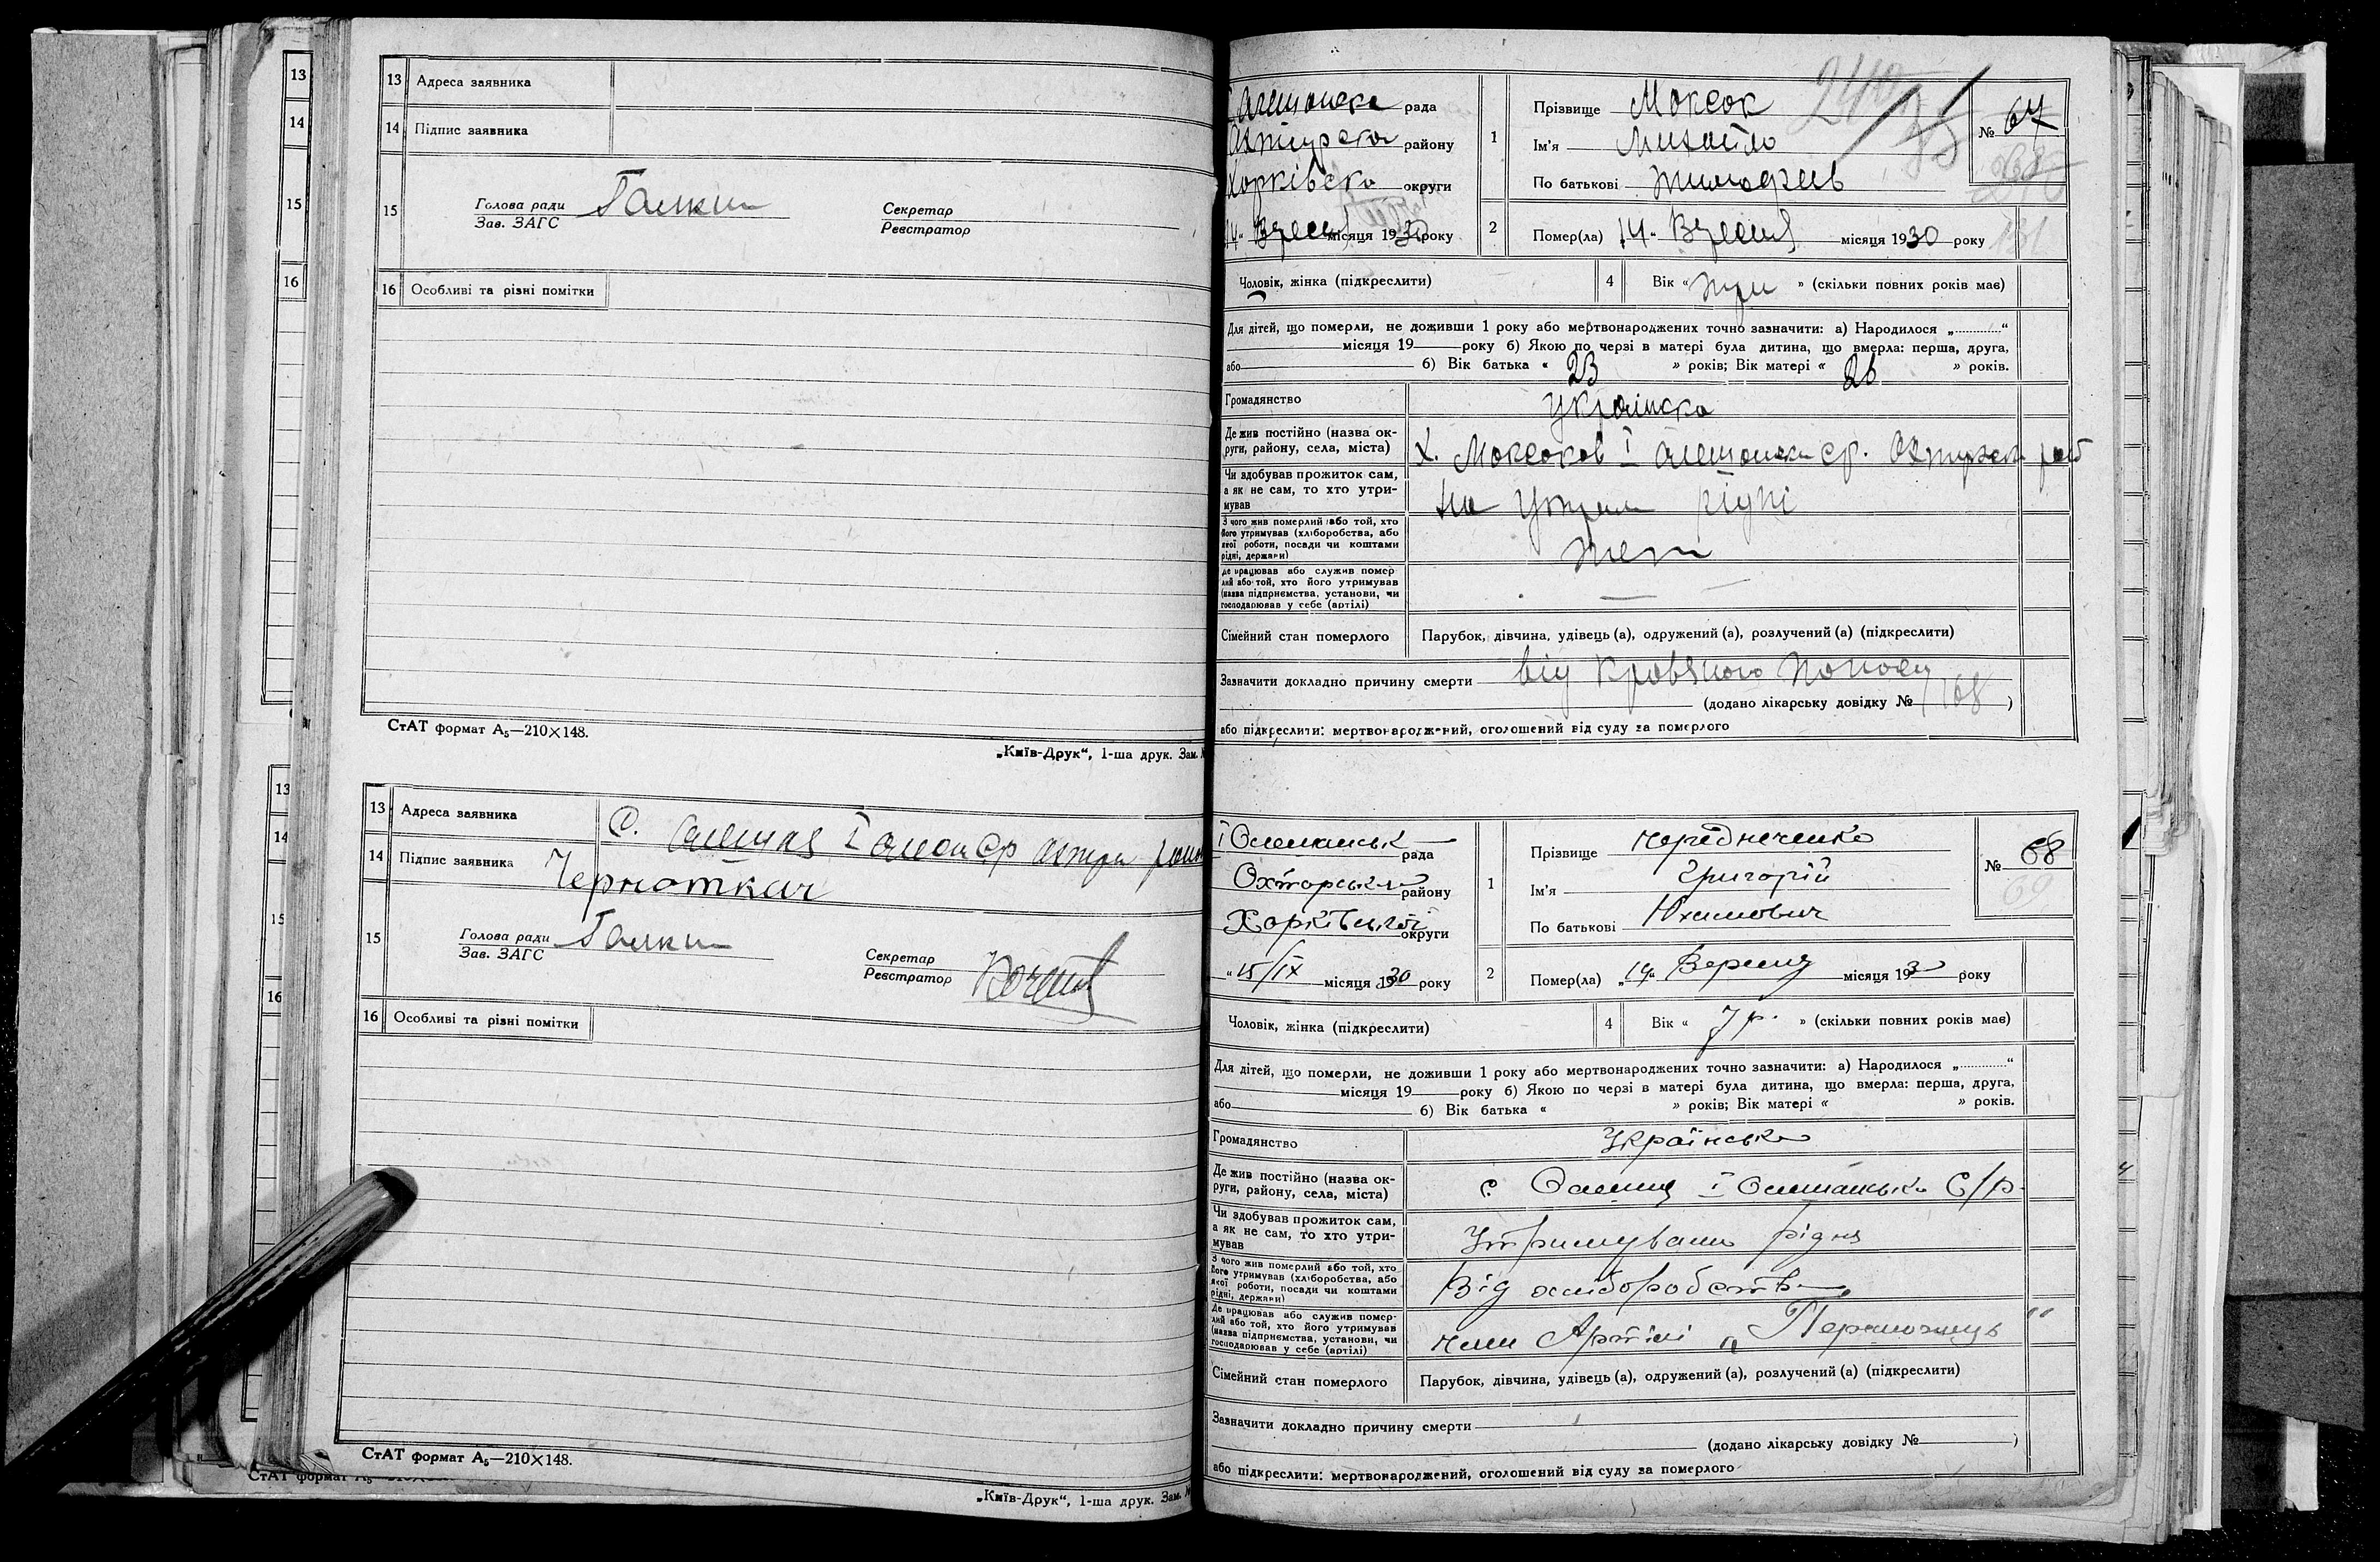 13 Адреса заявника
14 Підпис заявника
15 Голова ради Галкин Секретар
Зав. ЗАГС Реєстратор
16 Особливі та різні помітки
СтАТ формат А₅—210×148.
„Київ-Друк“, 1-ша друк. Зам.
13 Адреса заявника С.
14 Підпис заявника Черноткач
15 Голова ради Галкин Секретар
Зав. ЗАГС Реєстратор
16 Особливі та різні помітки
СтАТ формат А₅—210×148.
„Київ-Друк“, 1-ша друк. Зам.
13
14
15
16
13
14
15
16
СтАТ формат А₅
рада
району
Харківска округи
14 місяця 1930 року
1 Прізвище Моксок
Ім'я Михайло
По батькові
№ 67
240
2 Помер(ла) 14 місяця 1930 року
131
Чоловік, жінка (підкреслити) 4 Вік « три » (скільки повних років має)
Для дітей, що померли, не доживши 1 року або мертвонароджених точно зазначити: а) Народилося „ “
місяця 19 року б) Якою по черзі в матері була дитина, що вмерла: перша, друга,
або б) Вік батька « 23 » років; Вік матері « 26 » років.
Громадянство Українска
Де жив постійно (назва ок-
руги, району, села, міста) Х. Моксоков І
Чи здобував прожиток сам,
а як не сам, то хто утри-
мував на рідні
З чого жив померлий або той, хто
його утримував (хліборобства, або
якої роботи, посади чи коштами
рідні, держави)
Де працював або служив помер-
лий або той, хто його утримував
(назва підприємства, установи, чи
господарював у себе (артілі) —
Сімейний стан померлого Парубок, дівчина, удівець (а), одружений (а), розлучений (а) (підкреслити)
Зазначити докладно причину смерти від кровяного поносу
(додано лікарську довідку № 168 )
або підкреслити: мертвонароджений, оголошений від суду за померлого
І Олешанськ рада
Охтирського району
Харківської округи
„15/IX місяця 1930 року
1 Прізвище Чередниченко
Ім'я Григорій
По батькові Юхимович
№ 68
69
2 Помер(ла) „14“ Вересня місяця 193 року
Чоловік, жінка (підкреслити) 4 Вік « 7 р. » (скільки повних років має)
Для дітей, що померли, не доживши 1 року або мертвонароджених точно зазначити: а) Народилося „ “
місяця 19 року б) Якою по черзі в матері була дитина, що вмерла: перша, друга,
або б) Вік батька « » років; Вік матері « » років.
Громадянство Українська
Де жив постійно (назва ок-
руги, району, села, міста) с. Олешня І Олешанська С/р.
Чи здобував прожиток сам,
а як не сам, то хто утри-
мував Утримували рідня
З чого жив померлий або той, хто
його утримував (хліборобства, або
якої роботи, посади чи коштами
рідні, держави) Від хліборобства
Де працював або служив помер-
лий або той, хто його утримував
(назва підприємства, установи, чи
господарював у себе (артілі) член Артілі „Переможець“
Сімейний стан померлого Парубок, дівчина, удівець (а), одружений (а), розлучений (а) (підкреслити)
Зазначити докладно причину смерти
(додано лікарську довідку № )
або підкреслити: мертвонароджений, оголошений від суду за померлого